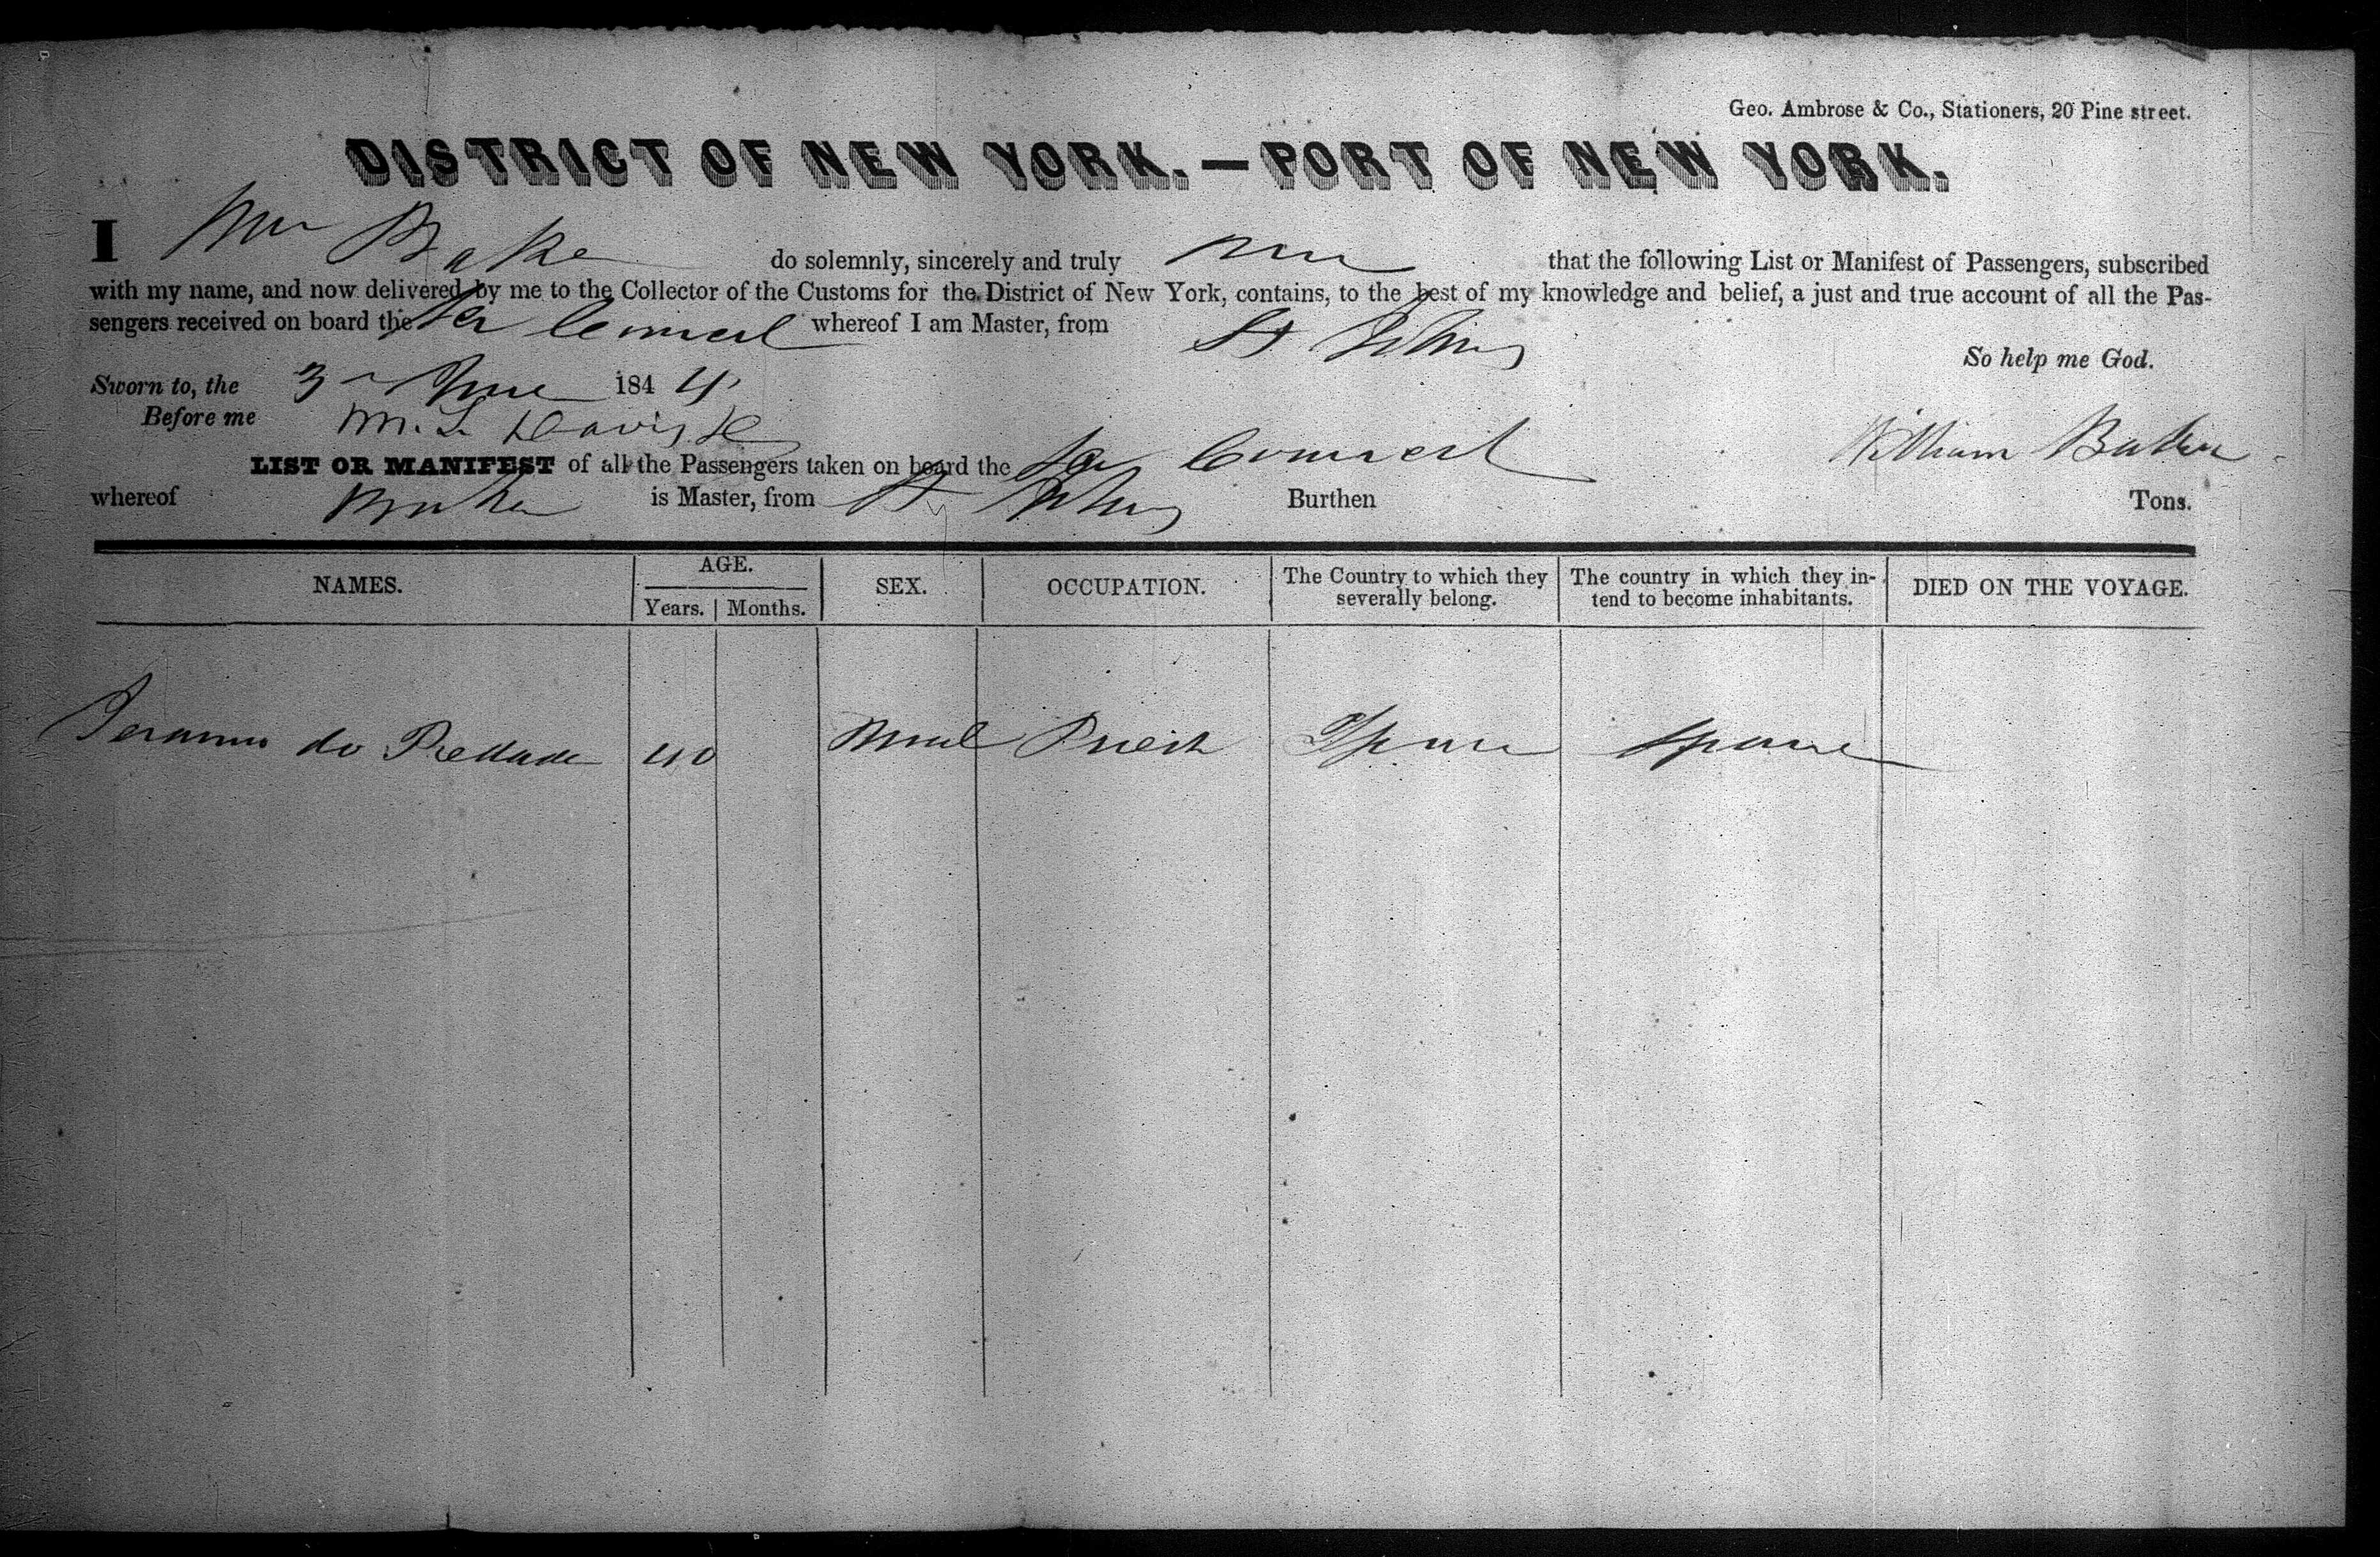 Geo. Ambrose & Co., Stationers, 20 Pine street.
DISTRICT OF NEW YORK.—PORT OF NEW YORK.
I Wm Baker do solemnly, sincerely and truly that the following List or Manifest of Passengers, subscribed
with my name, and now delivered by me to the Collector of the Customs for the District of New York, contains, to the best of my knowledge and belief, a just and true account of all the Pas-
sengers received on board the whereof I am Master, from St Johns
So help me God.
Sworn to, the 3 June 1844
Before me M. L. Davis
William Baker
LIST OR MANIFEST of all the Passengers taken on board the
whereof Baker is Master, from St Johns Burthen Tons.
NAMES. AGE. SEX. OCCUPATION. The Country to which they severally belong. The country in which they in-tend to become inhabitants. DIED ON THE VOYAGE.
Years. Months.
do 40 Male Priest Spain Spain